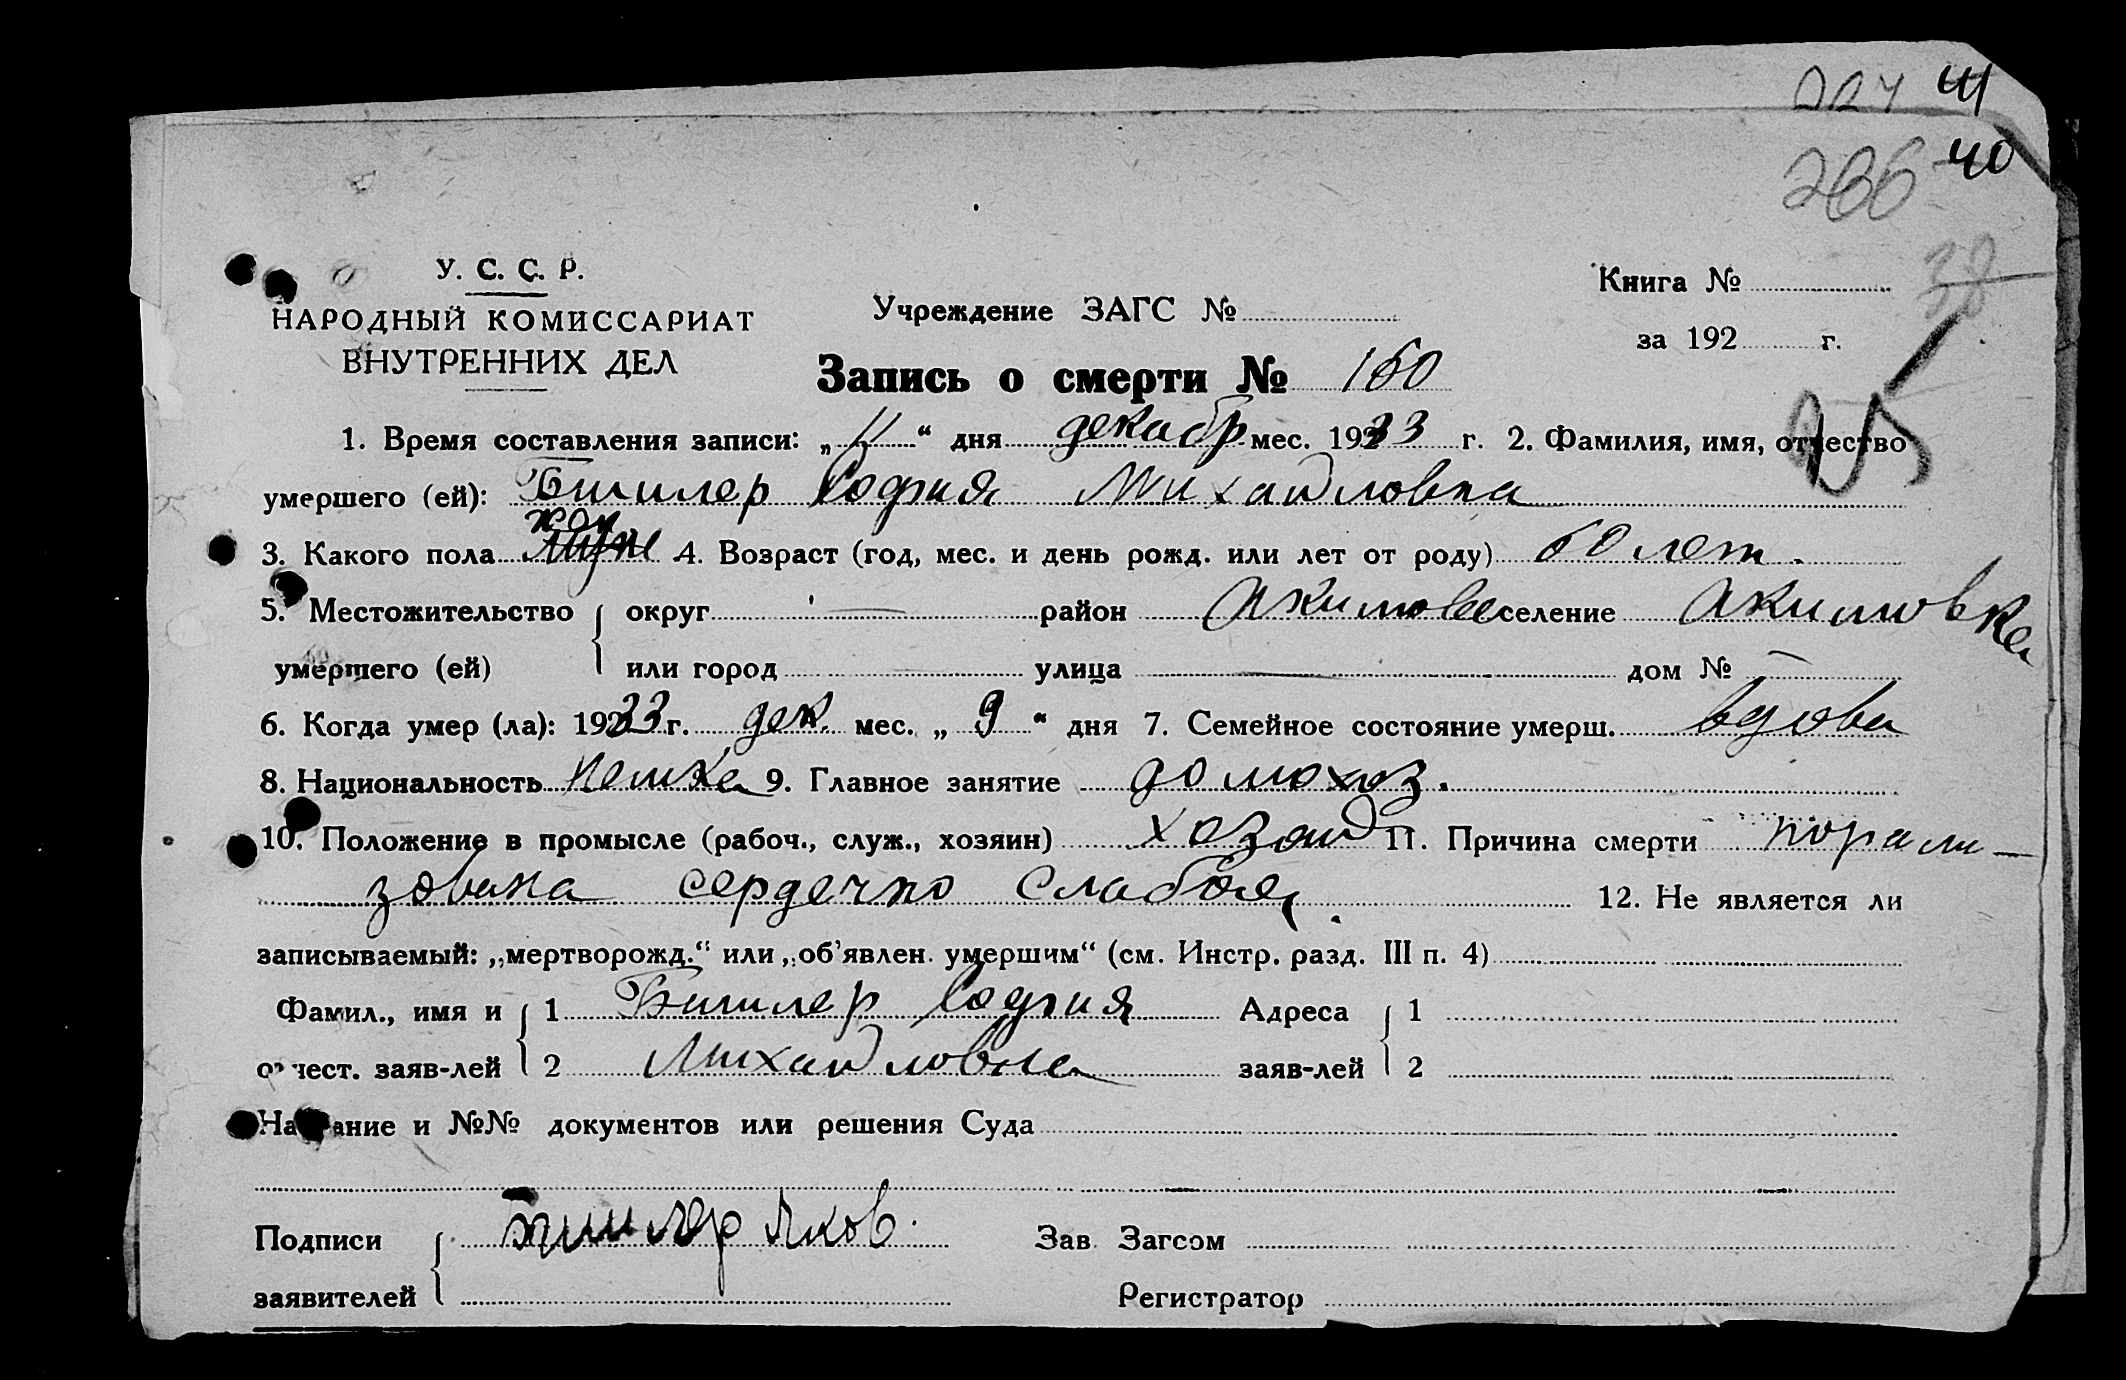 224 41
236 40
38
У. С. С. Р.
НАРОДНЫЙ КОМИССАРИАТ
ВНУТРЕННИХ ДЕЛ
Учреждение ЗАГС №
Книга №
за 192 г.
Запись о смерти № 160
1. Время составления записи: „ 11 “ дня декабр мес. 1933 г. 2. Фамилия, имя, отчество
умершего (ей): София Михайловна
3. Какого пола жен 4. Возраст (год, мес. и день рожд. или лет от роду) 60 лет.
5. Местожительство округ — район Акимовс селение Акимовка
умершего (ей) или город — улица — дом № —
6. Когда умер (ла): 1933 г. дек. мес. „ 9 “ дня 7. Семейное состояние умерш. вдова
8. Национальность немка 9. Главное занятие домохоз.
10. Положение в промысле (рабоч., служ., хозяин) хозяй 11. Причина смерти парали—
зована сердечно слабая. 12. Не является ли
записываемый: „мертворожд.“ или „об’явлен. умершим“ (см. Инстр. разд. III п. 4)
Фамил., имя и 1 София Адреса 1
отчест. заяв-лей 2 Михайловна заяв-лей 2
Название и №№ документов или решения Суда
Подписи Яков. Зав. Загсом
заявителей Регистратор